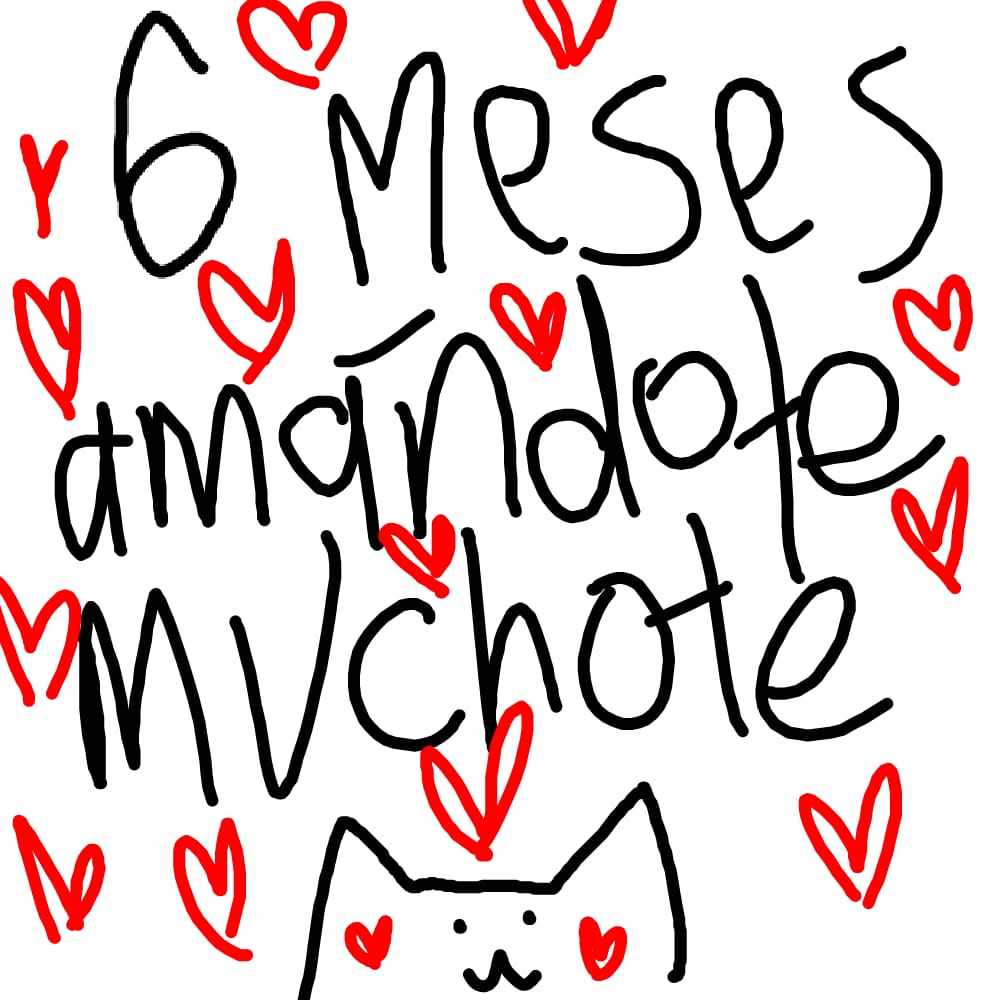 6 Meses
amándote
MUchote